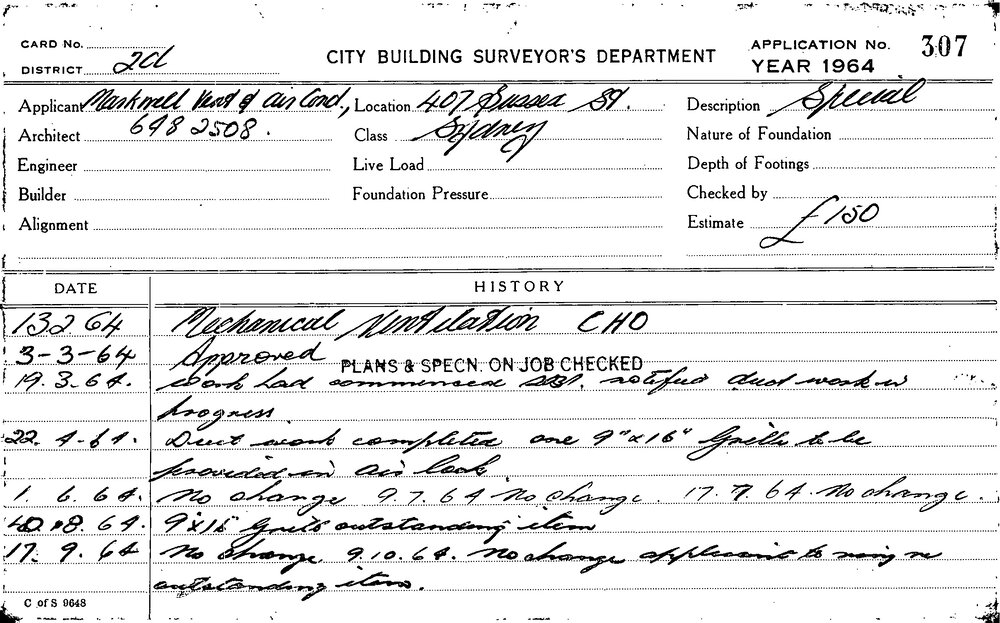 CARD No.
DISTRICT 2d
CITY BUILDING SURVEYOR'S DEPARTMENT
APPLICATION No. 307
YEAR 1964
Applicant Markwell Vent & Air Cond., Location 407 Sussex St. Description Special
Architect 648 2508. Class Sydney Nature of Foundation
Engineer Live Load Depth of Footings
Builder Foundation Pressure Checked by
Alignment Estimate £150
DATE HISTORY
13 2 64 Mechanical Ventilation CHO
3-3-64 Approved PLANS & SPECN. ON JOB CHECKED
19.3.64. work had commenced notified duct work in
progress
22. 4.64. Duct work completed one 9"x16" Grille to be
provided in air lock
1. 6. 64. No change 9.7.64 No change. 17.7.64. No change.
8. 64. outstanding item
17. 9. 64 No change. 9.10.64. No change applicant to ring re
outstanding item.
C of S 9648